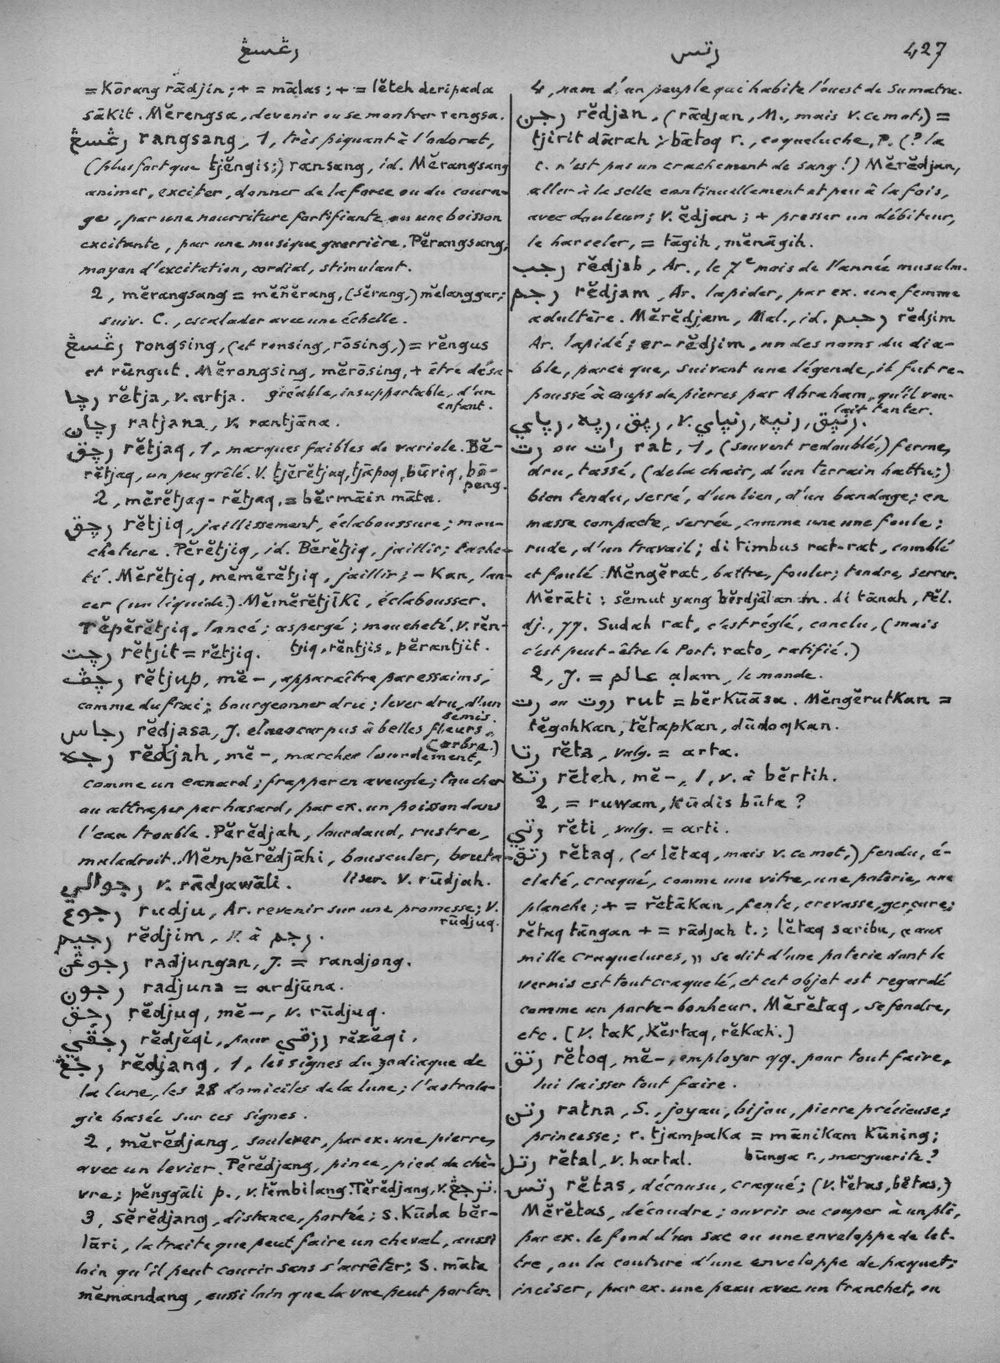 رڠسڠ
رتس
427
= Kōrang rādjin; + = mālas; + = lĕteh deripada
sākit. Mĕrengsa, devenir ou se montrer rengsa.
رڠسڠ rangsang, 1, très piquant à l'odorat,
(plus fort que tjĕngis;) ransang, id. Mĕrangsang
animer, exciter, donner de la force ou du coura-
ge, par une nourriture fortifiante ou une boisson
excitante, par une musique guerrière. Pĕrangsang,
moyen d'excitation, cordial, stimulant.
2, mĕrangsang = mĕñĕrang, (sĕrang,) mĕlanggar;
suiv. C., escalader avec une échelle.
رڠسڠ rongsing, (et ronsing, rōsing,) = rĕngus
et rŭngut. Mĕrongsing, mĕrōsing, + être désa-
gréable, insupportable, d'un
enfant.
رچا rĕtja, v. artja.
رچان ratjana, v. rantjāna.
رچق rĕtjaq, 1, marques faibles de variole. Bĕ-
rĕtjaq, un peu grêlé. V. tjĕrĕtjaq, tjāpoq, būriq, bō-
peng.
2, mĕrĕtjaq-rĕtjaq, = bĕrmāin māta.
رچق rĕtjiq, jaillissement, éclaboussure; mou-
cheture. Pĕrĕtjiq, id. Bĕrĕtjiq, jaillir; tache-
té. Mĕrĕtjiq, mĕmĕrĕtjiq, jaillir; – Kan, lan-
cer (un liquide.) MĕmĕrĕtjīKi, éclabousser.
Tĕpĕrĕtjiq, lancé; aspergé; moucheté. V. rĕn-
tjiq, rĕntjis, pĕrantjit.
رچت rĕtjit = rĕtjiq.
رچڤ rĕtjup, mĕ –, apparaître par essaims,
comme du frai; bourgeonner dru; lever dru, d'un
semis.
رجاس rĕdjasa, J. elaeocarpus à belles fleurs.
(arbre.)
رجه rĕdjah, mĕ –, marcher lourdement,
comme un canard; frapper en aveugle; toucher
ou attraper par hasard, par ex. un poisson dans
l'eau trouble. Pĕrĕdjah, lourdaud, rustre,
maladroit. Mĕmpĕrĕdjāhi, bousculer, boute-
liser. V. rūdjah.
رجوالي v. rādjawāli.
رجوع rudju, Ar. revenir sur une promesse; V.
rūdjuq.
رجيم rĕdjim, v. à رجم.
رجوڠن radjungan, J. = randjong.
رجون radjuna = ardjūna.
رجق rĕdjuq, mĕ –, v. rūdjuq.
رجقي rĕdjĕqi, pour رزقي rĕzĕqi.
رجڠ rĕdjang, 1, les signes du zodiaque de
la lune, les 28 domiciles de la lune; l'astrolo-
gie basée sur ces signes.
2, mĕrĕdjang, soulever, par ex. une pierre,
avec un levier. Pĕrĕdjang, pince, pied de chè-
vre; pĕnggāli p., v. tĕmbilang. Tĕrĕdjang, v. ترجڠ.
3, sĕrĕdjang, distance, portée; s. Kūda bĕr-
lāri, la traite que peut faire un cheval, aussi
loin qu'il peut courir sans s'arrêter; s. māta
mĕmandang, aussi loin que la vue peut porter.
4, nom d'un peuple qui habite l'ouest de Sumatra.
رجن rĕdjan, (rādjan, M., mais v. ce mot,) =
tjirit dārah; bātoq r., coqueluche, P. (? la
c. n'est pas un crachement de sang!) Mĕrĕdjan,
aller à la selle continuellement et peu à la fois,
avec douleur; V. ĕdjan; + presser un débiteur,
le harceler, = tāgih, mĕnāgih.
رجب rĕdjab, Ar., le 7e mois de l'année musulm.
رجم rĕdjam, Ar. lapider, par ex. une femme
adultère. Mĕrĕdjam, Mal., id. رجيم rĕdjim
Ar. lapidé; er-rĕdjim, un des noms du dia-
ble, parce que, suivant une légende, il fut re-
poussé à coups de pierres par Abraham, qu'il vou-
lait tenter.
رڤاي, رڤه, رڤق, v. رنڤاي, رنڤه, رنڤق.
رت ou رات rat, 1, (souvent redoublé,) ferme,
dru, tassé, (de la chair, d'un terrain battu;)
bien tendu, serré, d'un lien, d'un bandage; en
masse compacte, serrée, comme une une foule;
rude, d'un travail; di timbus rat-rat, comblé
et foulé. Mĕngĕrat, battre, fouler; tendre, serrer.
Mĕrāti: sĕmut yang bĕrdjālan m. di tānah, Pĕl.
dj., 77. Sudah rat, c'est réglé, conclu, (mais
c'est peut-être le Port. rato, ratifié.)
2, J. = عالم alam, le monde.
رت ou روت rut = bĕrKūāsa. MĕngĕrutKan =
tĕgohKan, tĕtapKan, dūdoqKan.
رتا rĕta, vulg. = arta.
رته rĕteh, mĕ –, 1, v. à bĕrtih.
2, = ruwam, Kūdis būta?
رتي rĕti, vulg. = arti.
رتق rĕtaq, (et lĕtaq, mais v. ce mot,) fendu, é-
claté, craqué, comme une vitre, une poterie, une
planche; + = rĕtāKan, fente, crevasse, gerçure;
rĕtaq tāngan + = rādjah t.; lĕtaq sarību, « aux
mille craquelures, » se dit d'une poterie dont le
vernis est tout craquelé, et cet objet est regardé
comme un porte-bonheur. Mĕrĕtaq, se fendre,
etc. [V. taK, Kĕrtaq, rĕKah.]
رتق rĕtoq, mĕ –, employer qq. pour tout faire,
lui laisser tout faire.
رتن ratna, S., joyau, bijou, pierre précieuse;
princesse; r. tjampaKa = māniKam Kūning;
būnga r., marguerite?
رتل rĕtal, v. hartal.
رتس rĕtas, décousu, craqué; (v. tĕtas, bĕtas.)
Mĕrĕtas, découdre; ouvrir ou couper à un pli,
par ex. le fond d'un sac ou une enveloppe de let-
tre, ou la couture d'une enveloppe de paquet;
inciser, par ex. une peau avec un tranchet, ou